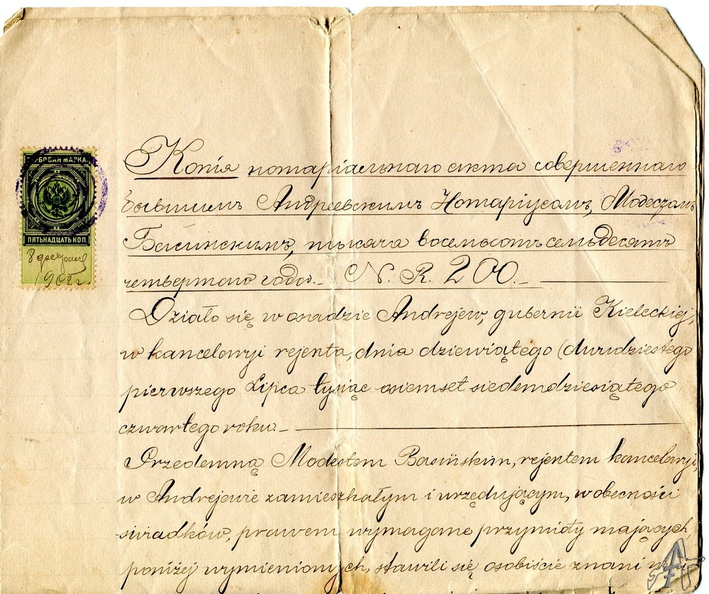 ГЕРБОВАЯ МАРКА
ПЯТЬНАДЦАТЬ КОП.
1902 г.
Копія нотаріальнаго акта совершеннаго
бывшимъ Андреевскимъ Нотаріусомъ, Модестомъ
Басинскимъ, тысяча восемьсотъ семьдесятъ
четвертаго года. N. R. 200.
Działo się w osadzie Andrejew, gubernii Kieleckiej,
w kancelaryi rejenta, dnia dziewiątego (dwudziestego
pierwszego Lipca tysiąc osiemset siedemdziesiątego
czwartego roku.
Przedemną Modestem Basińskim, rejentem kancelaryi
w Andrejewie zamieszkałym i urzędującym, w obecności
świadków, prawem wymagane przymioty mających,
poniżej wymienionych, stawili się osobiście znani